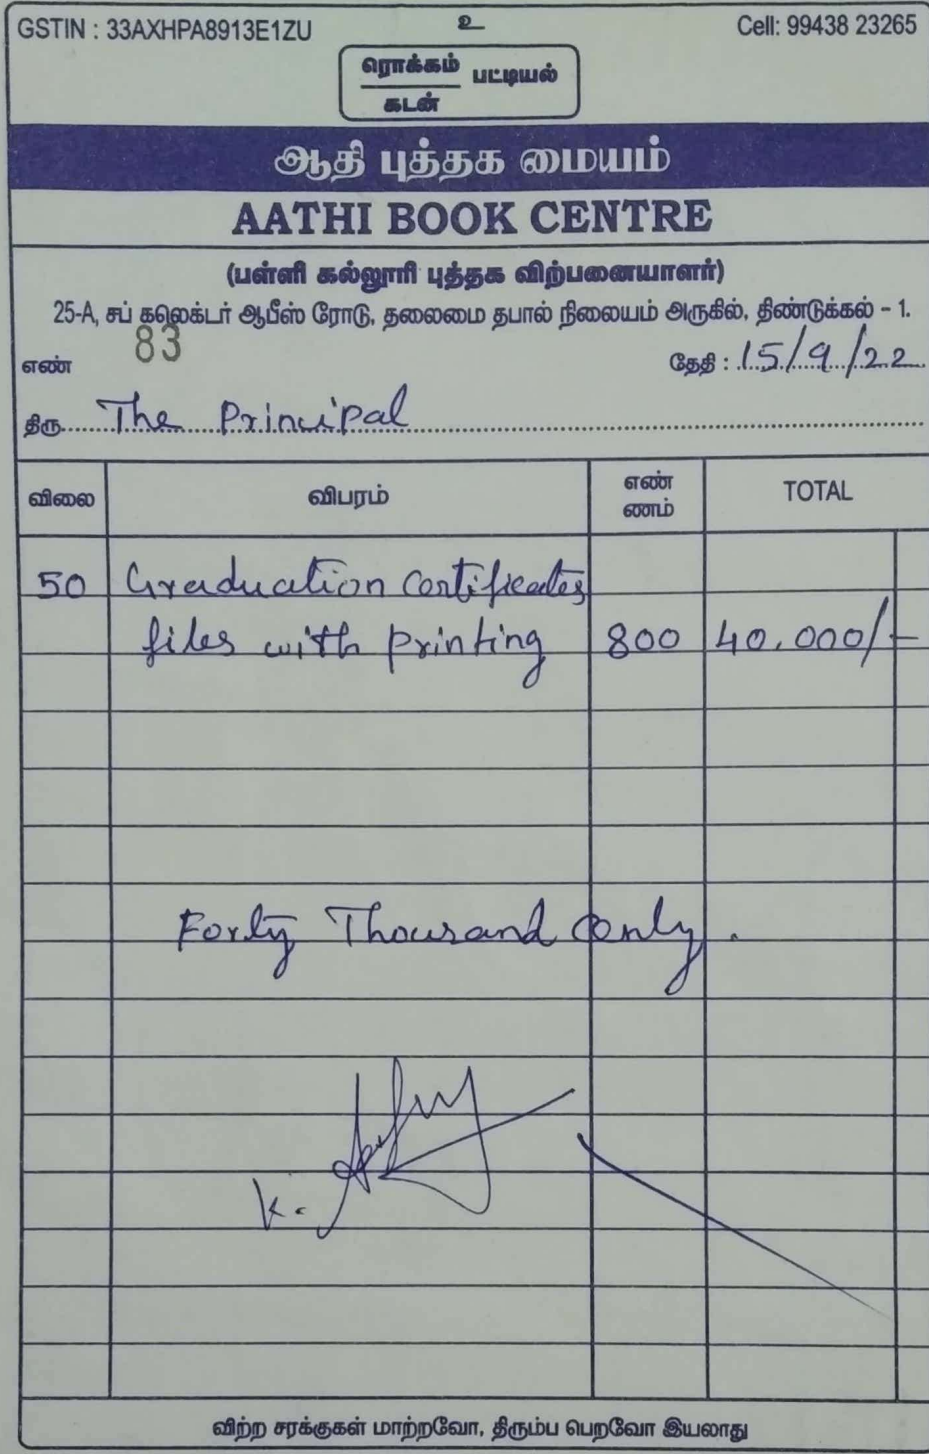 GSTIN : 33AXHPA8913E1ZU உ Cell: 99438 23265
ரொக்கம் பட்டியல்
கடன்
ஆதி புத்தக மையம்
AATHI BOOK CENTRE
(பள்ளி கல்லூரி புத்தக விற்பனையாளர்)
25-A, சப் கலெக்டர் ஆபீஸ் ரோடு, தலைமை தபால் நிலையம் அருகில், திண்டுக்கல் - 1.
எண் 83 தேதி : 15/9/22
திரு. The Principal
விலை விபரம் எண்ணம் TOTAL
50 Graduation certificates
files with printing 800 40,000/-
Forty Thousand only.
K.
விற்ற சரக்குகள் மாற்றவோ, திரும்ப பெறவோ இயலாது